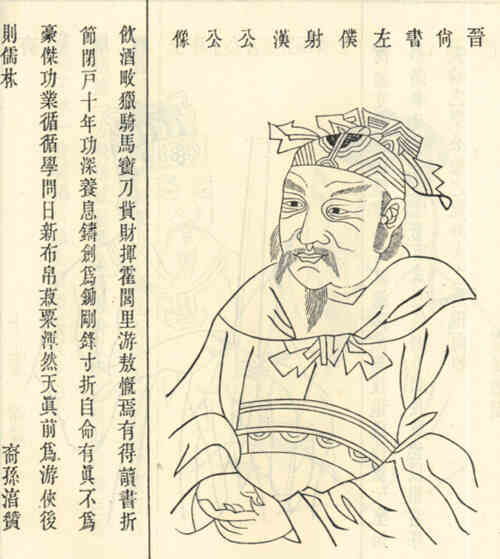 晉尙書左僕射漢公公像
飲酒畋獵騎馬寶刀貲財揮霍閭里游敖慨焉有得讀書折
節閉戸十年功深養息鑄劍爲鋤剛鋒寸折自命有眞不爲
豪傑功業循循學問日新布帛菽粟渾然天眞前爲游俠後
則儒林
裔孫贊